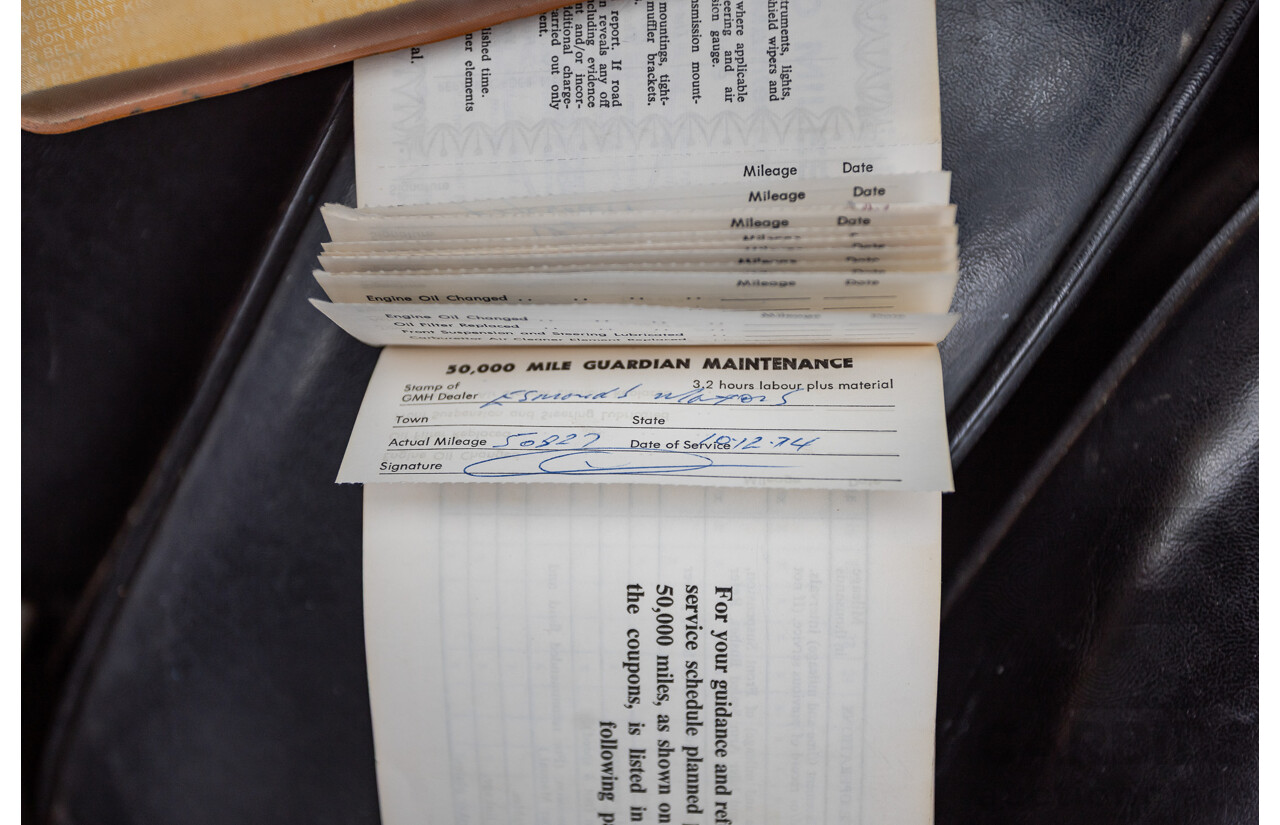 MONT KIN
R BELMONT KIN
LMONT KING
R BELMONT
MONT KING
BELMON
truments, lights,
shield wipers and
where applicable
eering and air
ion gauge.
nsmission mount-
mountings, tight-
muffler brackets.
report. If road
n reveals any off
cluding evidence
nt and/or incor-
dditional charge-
arried out only
ent.
lished time.
ner elements
al.
Mileage Date
Mileage Date
Mileage Date
Mileage Date
Mileage Date
Mileage Date
Engine Oil Changed
Engine Oil Changed
Oil Filter Replaced
Front Suspension and Steering Lubricated
Carburettor Air Cleaner Element Replaced
50,000 MILE GUARDIAN MAINTENANCE
Stamp of
GMH Dealer Esmonds Motors 3.2 hours labour plus material
Town State
Actual Mileage 50827 Date of Service 10·12·74
Signature
For your guidance and ref
service schedule planned
50,000 miles, as shown on
the coupons, is listed in
following p